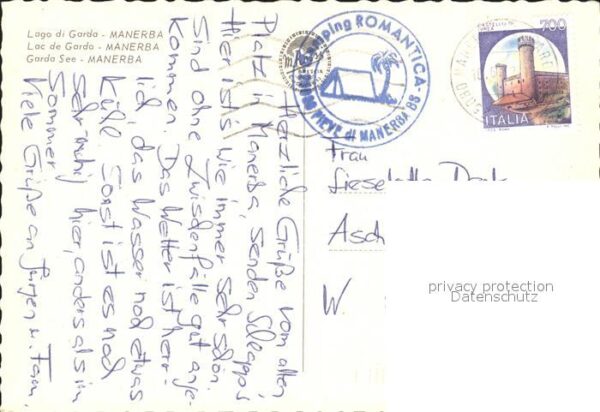 Lago di Garda - MANERBA
Lac de Garda - MANERBA
Garda See - MANERBA
Camping ROMANTICA
PIEVE di MANERBA BS
700
ITALIA
Herzliche Grüße vom alten
Platz in Manerba, senden
Hier ist's wie immer sehr schön.
Sind ohne Zwischenfälle gut ange-
kommen. Das Wetter ist herr-
lich, das Wasser noch etwas
kühl. Sonst ist es noch
sehr ruhig hier, anders als im
Sommer.
Viele Grüße an Jürgen u. Fam.
Frau
Lieselotte
Asch
W.
privacy protection
Datenschutz